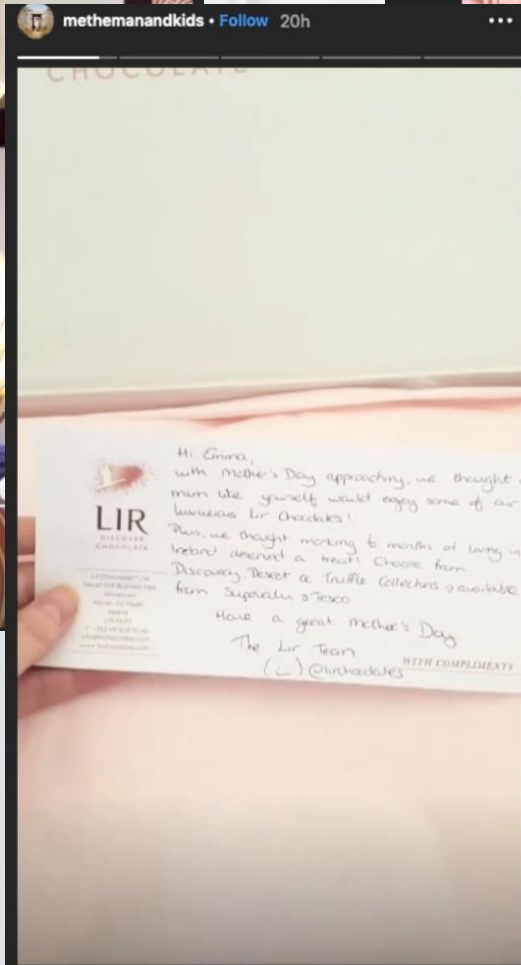 methemanandkids • Follow 20h
CHOCOLATE
LIR
DISCOVER
CHOCOLATE
Hi Emma,
with Mother's Day approaching, we thought
mum like yourself would enjoy some of our
luxurious Lir Chocolates!
Plus, we thought marking 6 months of living in
Ireland deserved a treat! Choose from
Discovery, Desert or Truffle Collections, available
from Supervalu & Tesco
Have a great Mother's Day
The Lir Team
@lirchocolates
WITH COMPLIMENTS